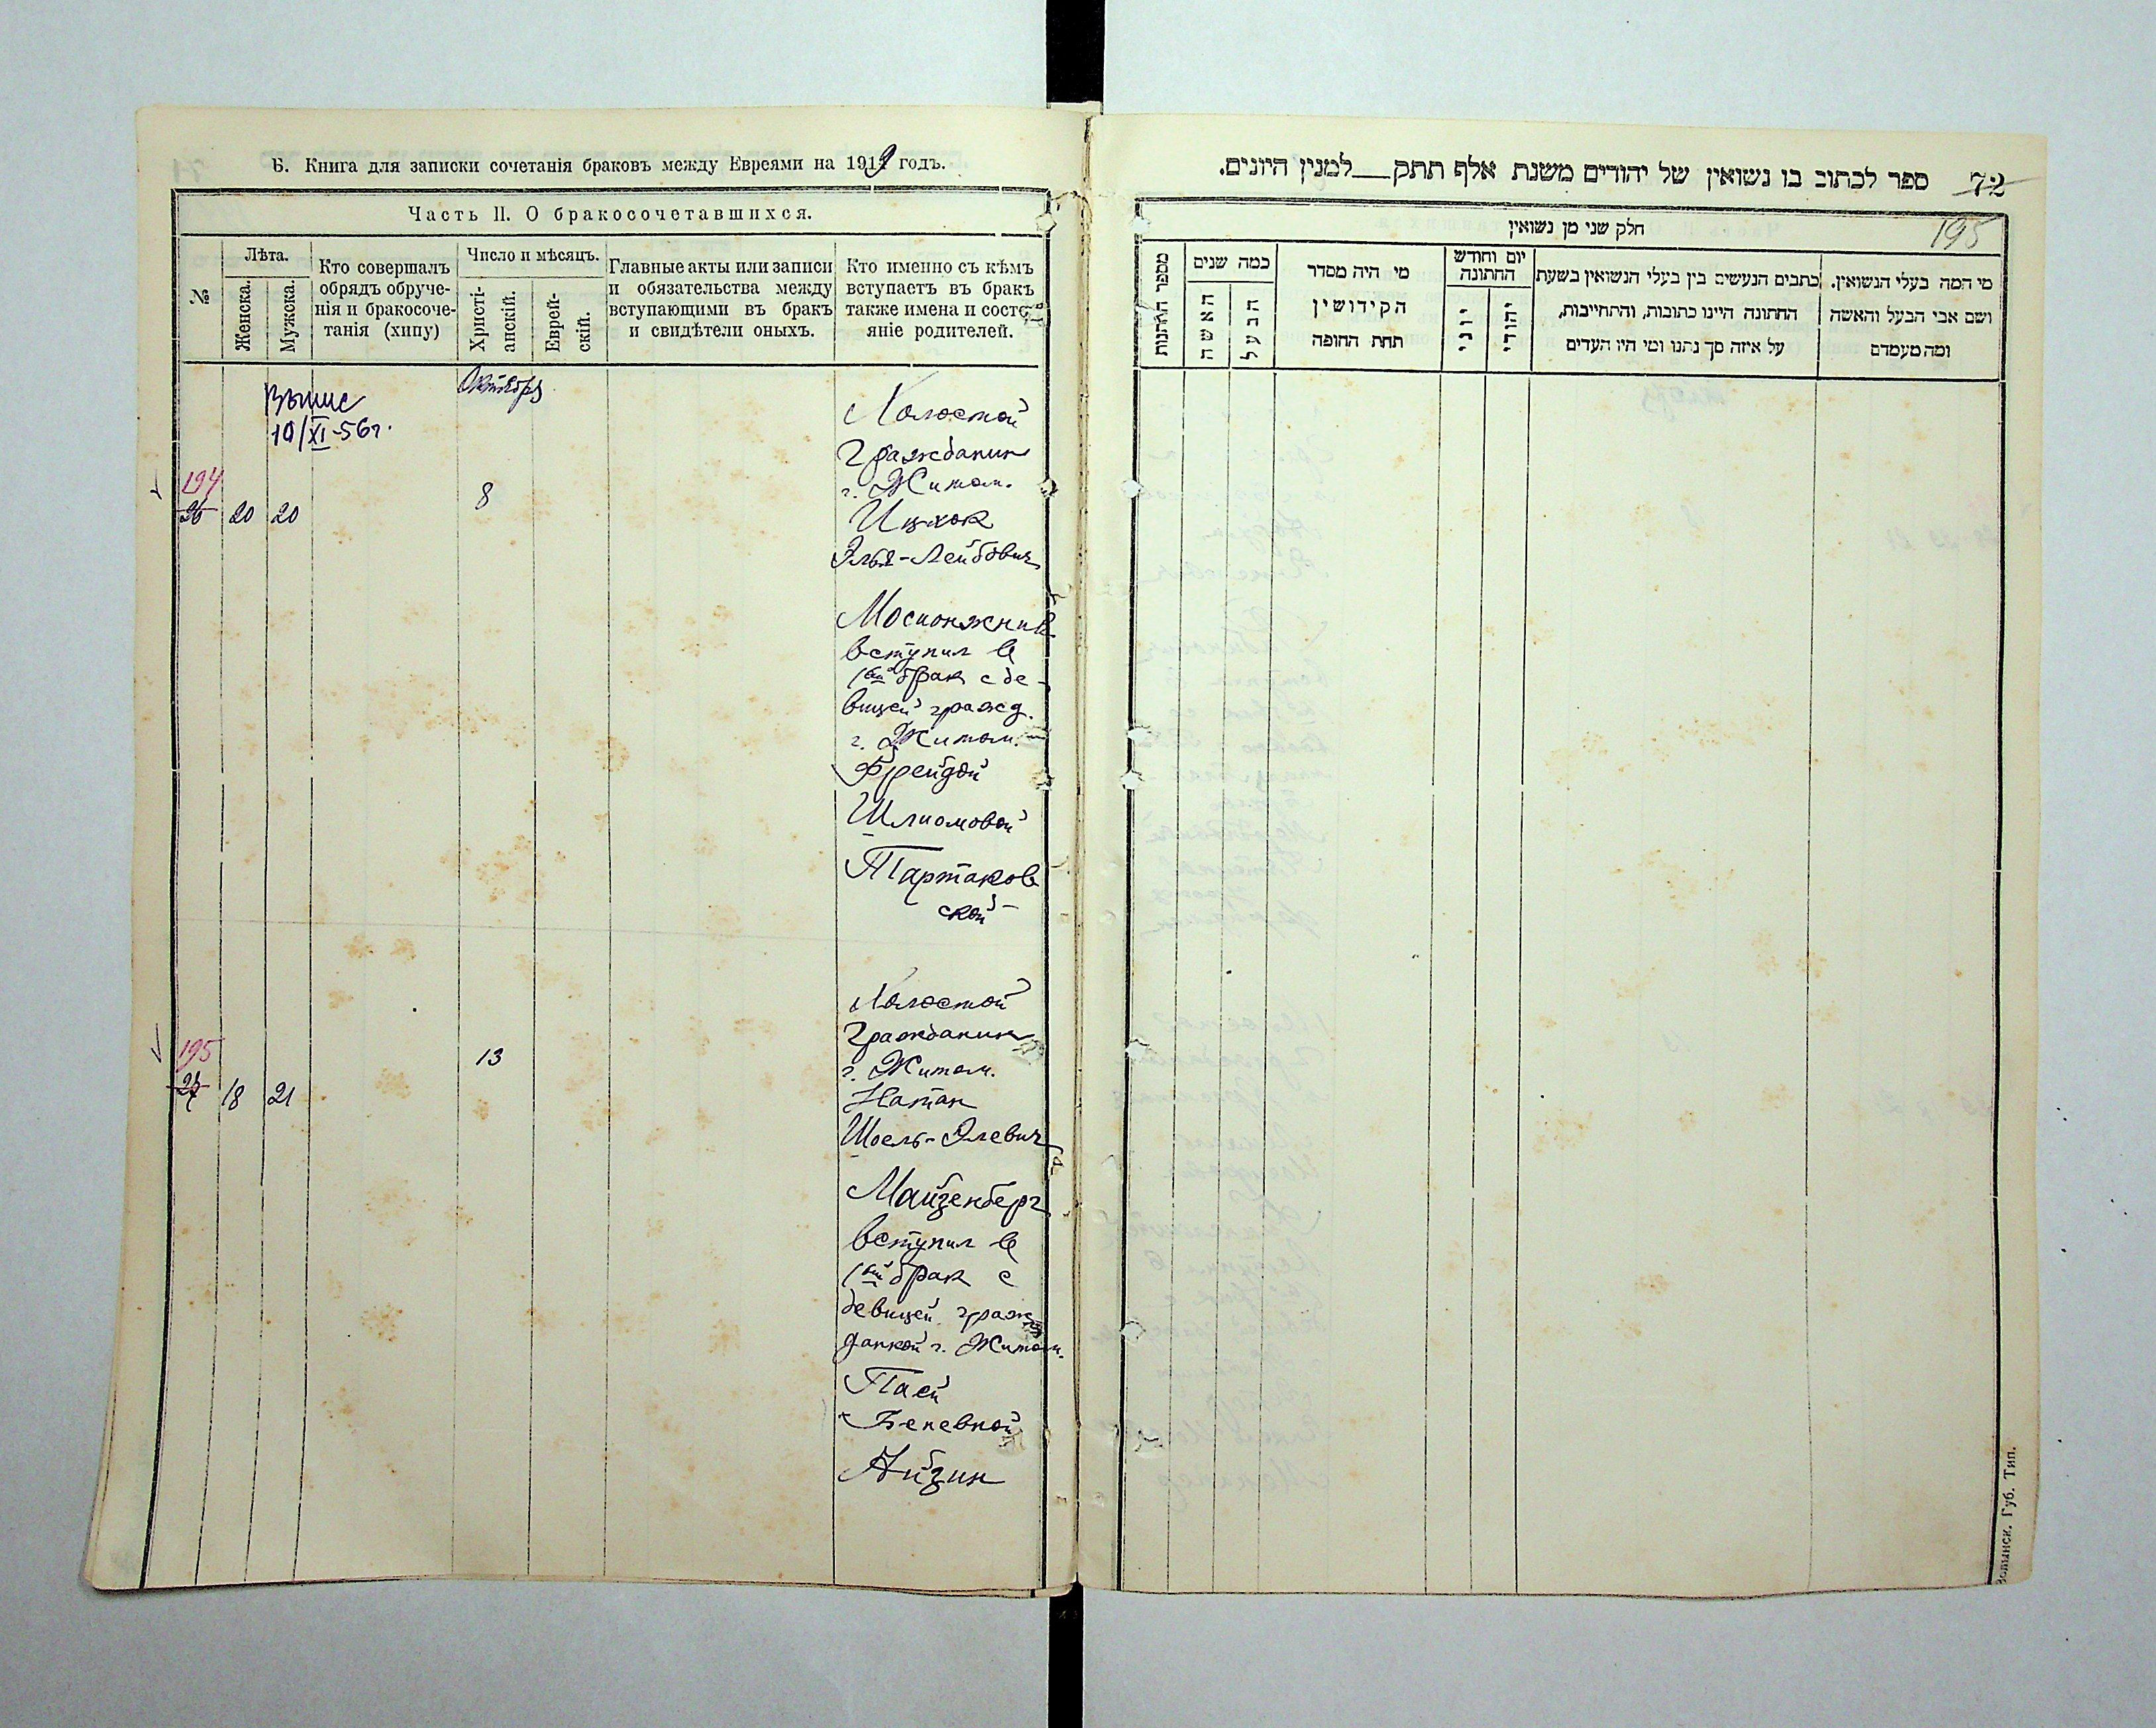 Б. Книга для записки сочетанія браковъ между Евреями на 1919 годъ.
Часть II. О бракосочетавшихся.
№
Лѣта.
Женска.
Мужска.
Кто совершалъ
обрядъ обруче-
нія и бракосоче-
танія (хипу)
Число и мѣсяцъ.
Христі-
анскій.
Еврей-
скій.
Главные акты или записи
и обязательства между
вступающими въ бракъ
и свидѣтели оныхъ.
Кто именно съ кѣмъ
вступаетъ въ бракъ
также имена и состо-
яніе родителей.
Октября
10/XI-56г.
194
26 20 20
8
Холостой
Гражданин
г. Житом.
Ицхок
Элья-Лейбович
Мосионжник
вступил в
1ый брак с де-
вицей гражд.
г. Житом.
Фрейдой
Шлиомовой
Тартаков
ской
195
27 18 21
13
Холостой
Гражданин
г. Житом.
Натан
Шоель-Элевич
Майзенберг
вступил в
1ый брак с
девицей граж
данкой г. Житом.
Пасй
Беневной
Айзин
72 ספר לכתוב בו נשואין של יהודים משנת אלף תתק למנין היונים.
195
חלק שני מן נשואין
מספר החתונות
כמה שנים
האשה
הבעל
מי היה מסדר
הקידושין
תחת החופה
יום וחודש
החתונה
יוני
יהודי
כתבים הנעשים בין בעלי הנשואין בשעת
החתונה היינו כתובות, והתחייבות,
על איזה סך נתנו ומי היו העדים
מי המה בעלי הנשואין.
ושם אבי הבעל והאשה
ומה מעמדם
Волынск. Губ. Тип.